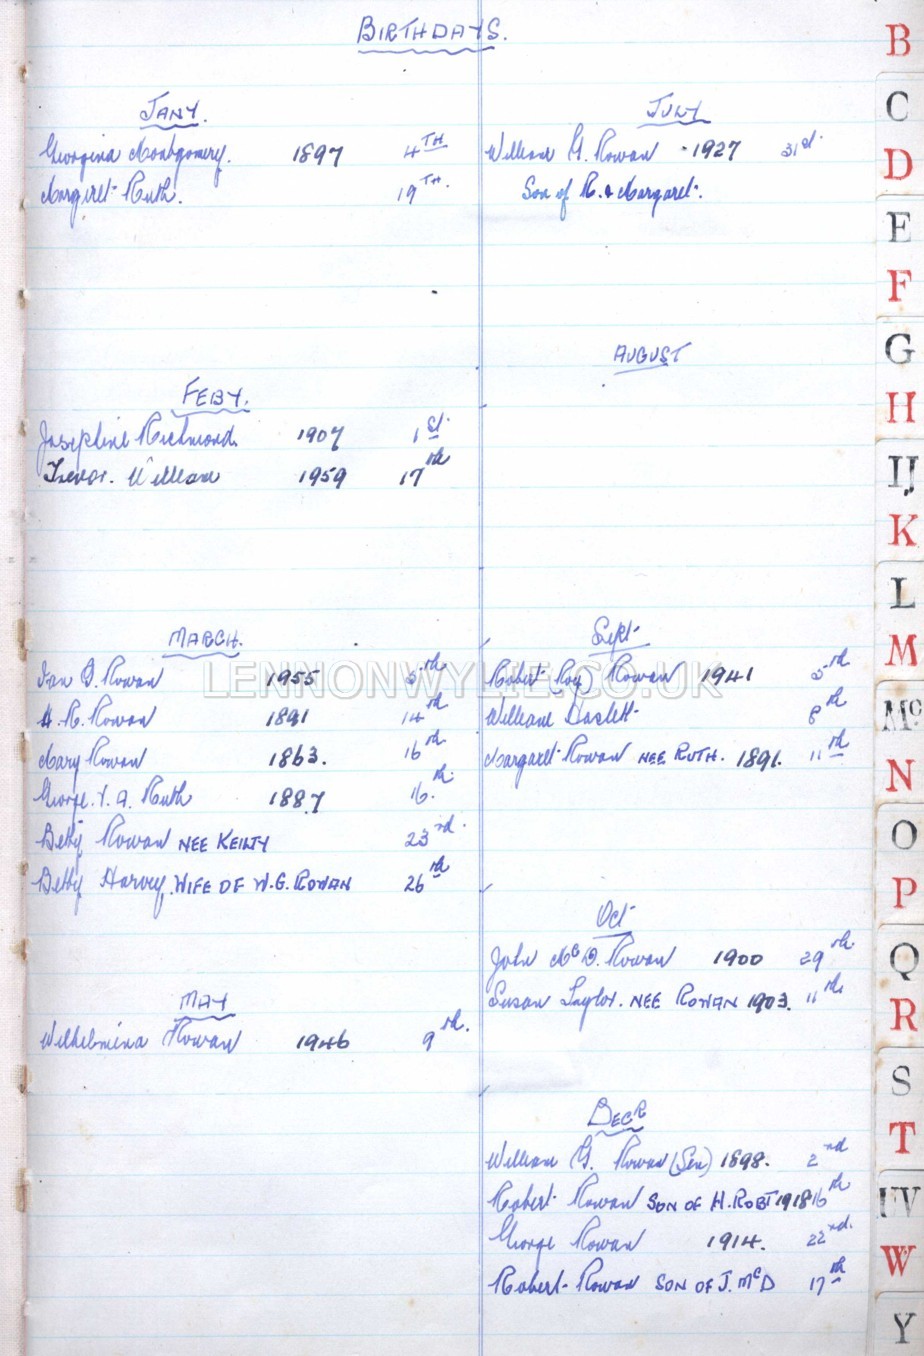 BIRTHDAYS.
JANY.
Georgina Montgomery. 1897 4TH
Margaret Ruth. 19TH.
FEBY.
Josephine Richmond. 1907 1st.
Trevor. William 1959 17th
MARCH.
Ian G. Rowan 1955 5th
H. R. Rowan 1891 14th
Mary Rowan 1863. 16th
George. Y. A. Ruth 1887 16th.
Betty Rowan NEE KEILTY 23rd.
Betty Harvey, WIFE OF W.G. ROWAN 26th
MAY
Wilhelmina Rowan 1946 9th.
JULY
William G. Rowan 1927 31st.
Son of R. & Margaret.
AUGUST
Sept
Robert (Roy) Rowan 1941 5th
William Haslett 8th
Margaret Rowan NEE RUTH. 1891. 11th
Oct
John McD. Rowan 1900 29th
Susan Taylor. NEE ROWAN 1903. 11th
DECR
William G. Rowan (Sen) 1898. 2nd
Robert Rowan SON OF H. ROBT 1918 16th
George Rowan 1914. 22nd.
Robert Rowan SON OF J. McD 17th
B
C
D
E
F
G
H
IJ
K
L
M
Mc
N
O
P
Q
R
S
T
UV
W
Y
LENNONWYLIE.CO.UK